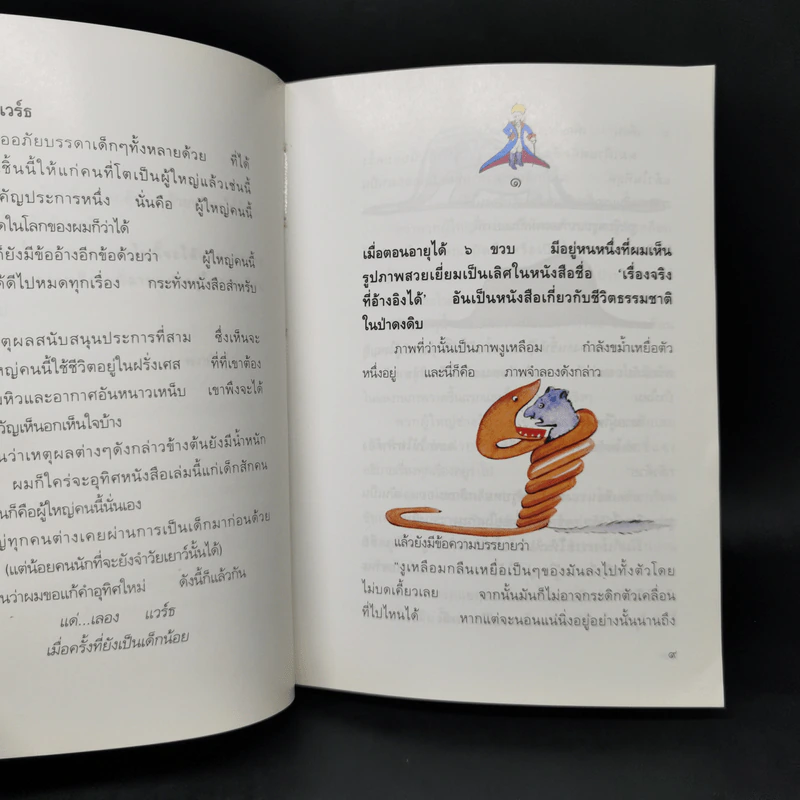 แวร์ธ
ออภัยบรรดาเด็กๆทั้งหลายด้วย ที่ได้
ชิ้นนี้ให้แก่คนที่โตเป็นผู้ใหญ่แล้วเช่นนี้
คัญประการหนึ่ง นั่นคือ ผู้ใหญ่คนนี้
ดในโลกของผมก็ว่าได้
ก็ยังมีข้ออ้างอีกข้อด้วยว่า ผู้ใหญ่คนนี้
ด้ดีไปหมดทุกเรื่อง กระทั่งหนังสือสำหรับ
หตุผลสนับสนุนประการที่สาม ซึ่งเห็นจะ
หญ่คนนี้ใช้ชีวิตอยู่ในฝรั่งเศส ที่ที่เขาต้อง
มหิวและอากาศอันหนาวเหน็บ เขาพึงจะได้
วัญเห็นอกเห็นใจบ้าง
นว่าเหตุผลต่างๆดังกล่าวข้างต้นยังมีน้ำหนัก
ผมก็ใคร่จะอุทิศหนังสือเล่มนี้แก่เด็กสักคน
นก็คือผู้ใหญ่คนนี้นั่นเอง
ญ่ทุกคนต่างเคยผ่านการเป็นเด็กมาก่อนด้วย
(แต่น้อยคนนักที่จะยังจำวัยเยาว์นั้นได้)
นว่าผมขอแก้คำอุทิศใหม่ ดังนี้ก็แล้วกัน
แด่...เลอง แวร์ธ
เมื่อครั้งที่ยังเป็นเด็กน้อย
๑
เมื่อตอนอายุได้ ๖ ขวบ มีอยู่หนหนึ่งที่ผมเห็น
รูปภาพสวยเยี่ยมเป็นเลิศในหนังสือชื่อ ‘เรื่องจริง
ที่อ้างอิงได้’ อันเป็นหนังสือเกี่ยวกับชีวิตธรรมชาติ
ในป่าดงดิบ
ภาพที่ว่านั้นเป็นภาพงูเหลือม กำลังขม้ำเหยื่อตัว
หนึ่งอยู่ และนี่ก็คือ ภาพจำลองดังกล่าว
แล้วยังมีข้อความบรรยายว่า
“งูเหลือมกลืนเหยื่อเป็นๆของมันลงไปทั้งตัวโดย
ไม่บดเคี้ยวเลย จากนั้นมันก็ไม่อาจกระดิกตัวเคลื่อน
ที่ไปไหนได้ หากแต่จะนอนแน่นิ่งอยู่อย่างนั้นนานถึง
๙